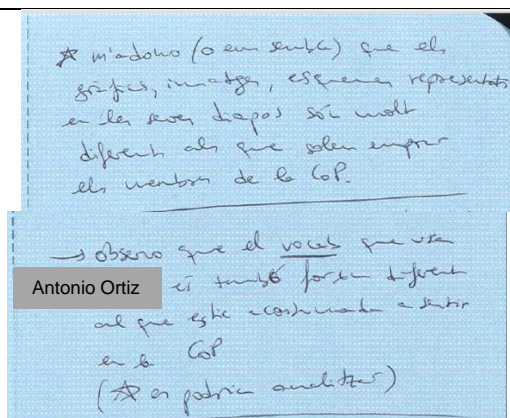 ☆ m'adono (o em sembla) que els
gràfics, imatges, esquemes representats
en les seves diapos són molt
diferents als que solen emprar
els membres de la CoP.
→ observo que el vocab que usa
Antonio Ortiz és també força diferent
al que estic acostumada a sentir
en la CoP
(☆ es podria analitzar)